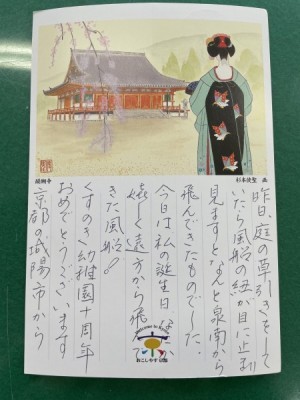 醍醐寺
杉本俊聖 画
昨日、庭の草引きをして
いたら風船の紐が目に止まり
見ますとなんと泉南から
飛んできたものでした.
今日は私の誕生日
嬉しく遠方から飛んで
きた風船!
くすのき幼稚園十周年
おめでとうございます
京都の城陽市から
Welcome to Kyoto
京
おこしやす 京都